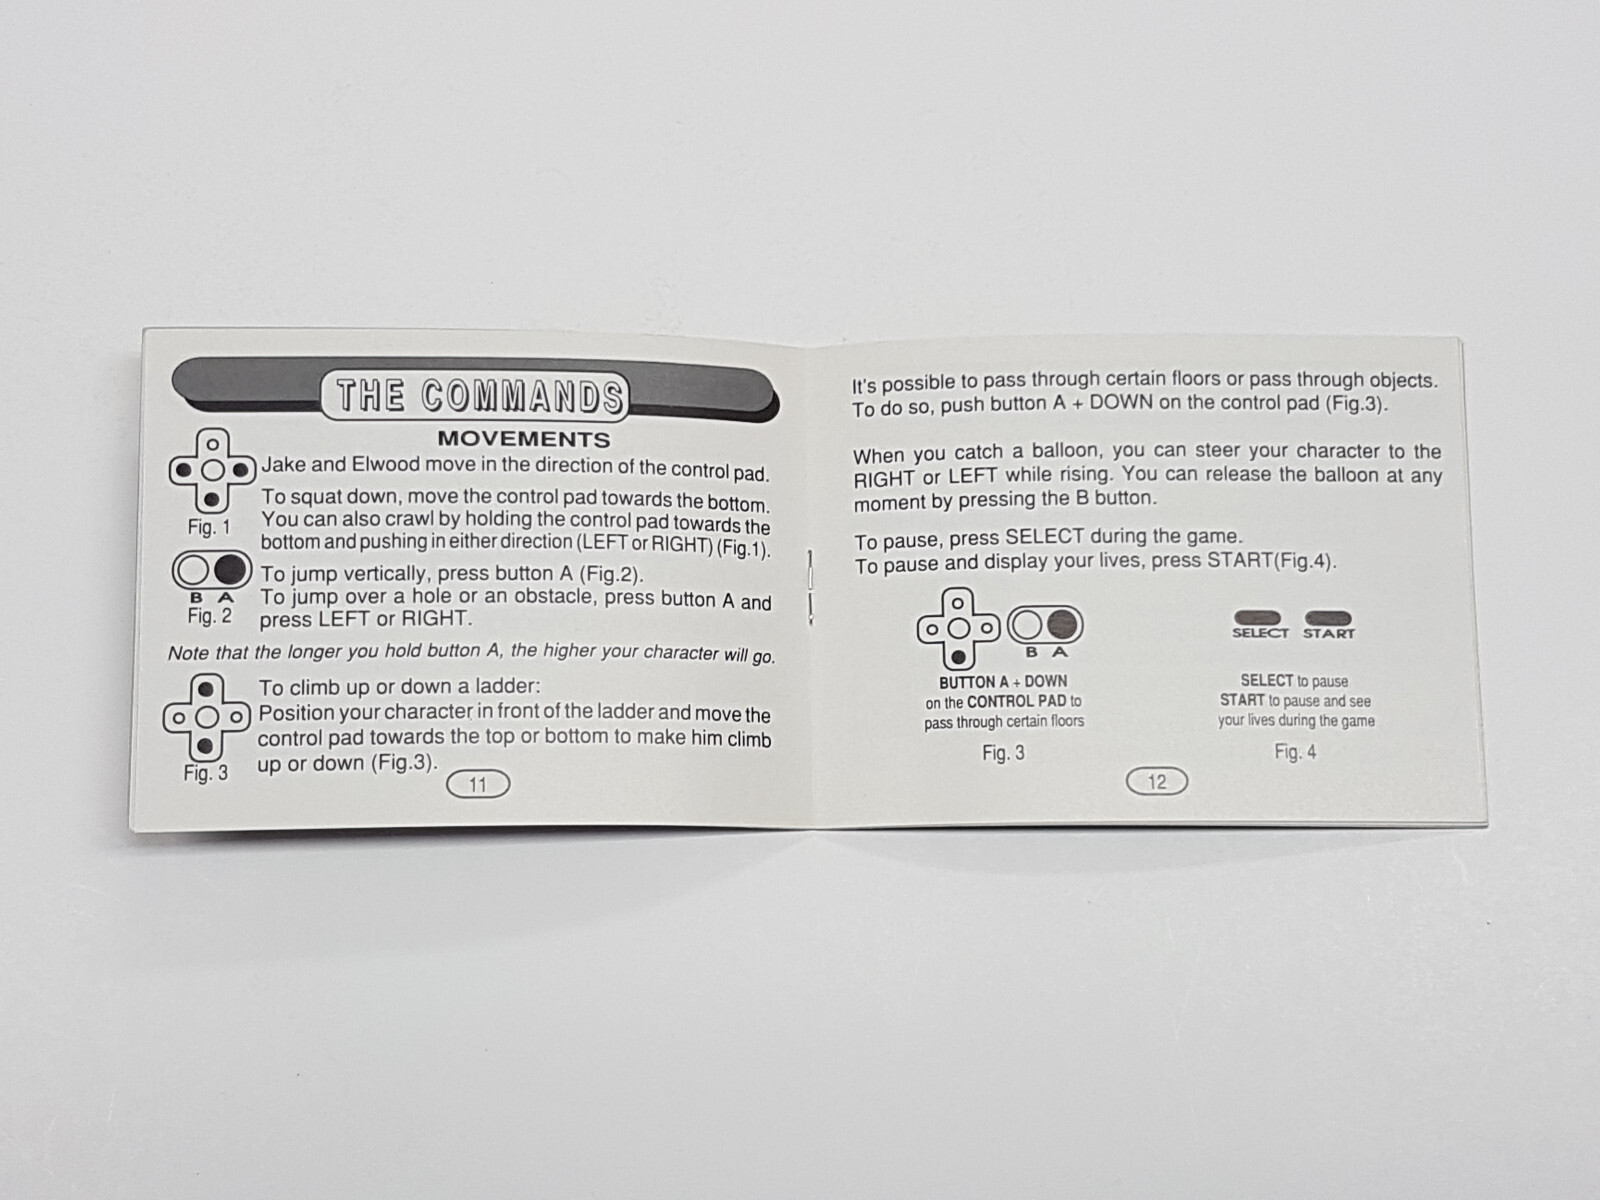 THE COMMANDS
MOVEMENTS
Jake and Elwood move in the direction of the control pad.
To squat down, move the control pad towards the bottom.
You can also crawl by holding the control pad towards the
bottom and pushing in either direction (LEFT or RIGHT) (Fig.1).
Fig. 1
To jump vertically, press button A (Fig.2).
To jump over a hole or an obstacle, press button A and
press LEFT or RIGHT.
B A
Fig. 2
Note that the longer you hold button A, the higher your character will go.
To climb up or down a ladder:
Position your character in front of the ladder and move the
control pad towards the top or bottom to make him climb
up or down (Fig.3).
Fig. 3
11
It's possible to pass through certain floors or pass through objects.
To do so, push button A + DOWN on the control pad (Fig.3).
When you catch a balloon, you can steer your character to the
RIGHT or LEFT while rising. You can release the balloon at any
moment by pressing the B button.
To pause, press SELECT during the game.
To pause and display your lives, press START(Fig.4).
B A
BUTTON A + DOWN
on the CONTROL PAD to
pass through certain floors
Fig. 3
SELECT START
SELECT to pause
START to pause and see
your lives during the game
Fig. 4
12